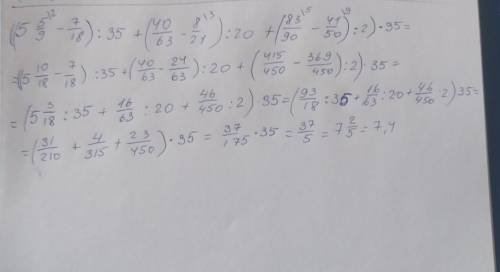 (5 5/9^2 - 7/18) : 35 + (40/63 - 8/21^3) : 20 + (83/90^5 - 41/50^9) : 2) · 35 =
= (5 10/18 - 7/18) : 35 + (40/63 - 24/63) : 20 + (415/450 - 369/450) : 2) · 35 =
= (5 3/18 : 35 + 16/63 : 20 + 46/450 : 2) · 35 = (93/18 : 35 + 16/63 · 20 + 46/450 · 2) 35 =
= (31/210 + 4/315 + 23/450) · 35 = 37/175 · 35 = 37/5 = 7 2/5 = 7,4